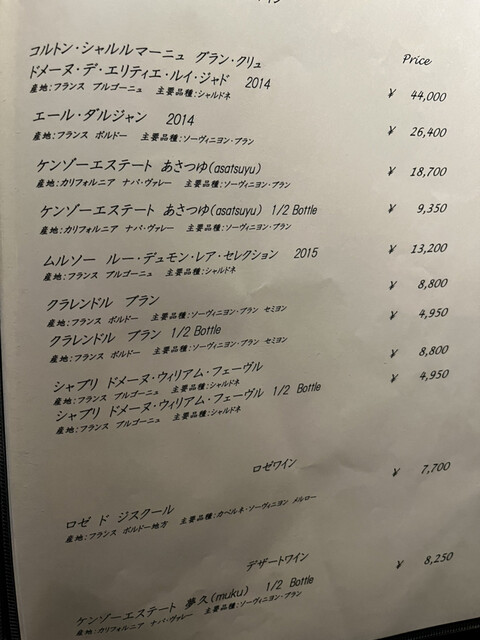 Price
コルトン・シャルルマーニュ グラン・クリュ
ドメーヌ・デ・エリティエ・ルイ・ジャド 2014
産地:フランス ブルゴーニュ 主要品種:シャルドネ
¥ 44,000
エール・ダルジャン 2014
産地:フランス ボルドー 主要品種:ソーヴィニヨン・ブラン
¥ 26,400
ケンゾーエステート あさつゆ(asatsuyu)
産地:カリフォルニア ナパ・ヴァレー 主要品種:ソーヴィニヨン・ブラン
¥ 18,700
ケンゾーエステート あさつゆ(asatsuyu) 1/2 Bottle
産地:カリフォルニア ナパ・ヴァレー 主要品種:ソーヴィニヨン・ブラン
¥ 9,350
ムルソー ルー・デュモン・レア・セレクション 2015
産地:フランス ブルゴーニュ 主要品種:シャルドネ
¥ 13,200
クラレンドル ブラン
産地:フランス ボルドー 主要品種:ソーヴィニヨン・ブラン セミヨン
¥ 8,800
クラレンドル ブラン 1/2 Bottle
産地:フランス ボルドー 主要品種:ソーヴィニヨン・ブラン セミヨン
¥ 4,950
シャブリ ドメーヌ・ウィリアム・フェーヴル
産地:フランス ブルゴーニュ 主要品種:シャルドネ
¥ 8,800
シャブリ ドメーヌ・ウィリアム・フェーヴル 1/2 Bottle
産地:フランス ブルゴーニュ 主要品種:シャルドネ
¥ 4,950
ロゼワイン
ロゼ ド ジスクール
産地:フランス ボルドー地方 主要品種:カベルネ・ソーヴィニヨン メルロー
¥ 7,700
デザートワイン
ケンゾーエステート 夢久(muku) 1/2 Bottle
産地:カリフォルニア ナパ・ヴァレー 主要品種:ソーヴィニヨン・ブラン
¥ 8,250